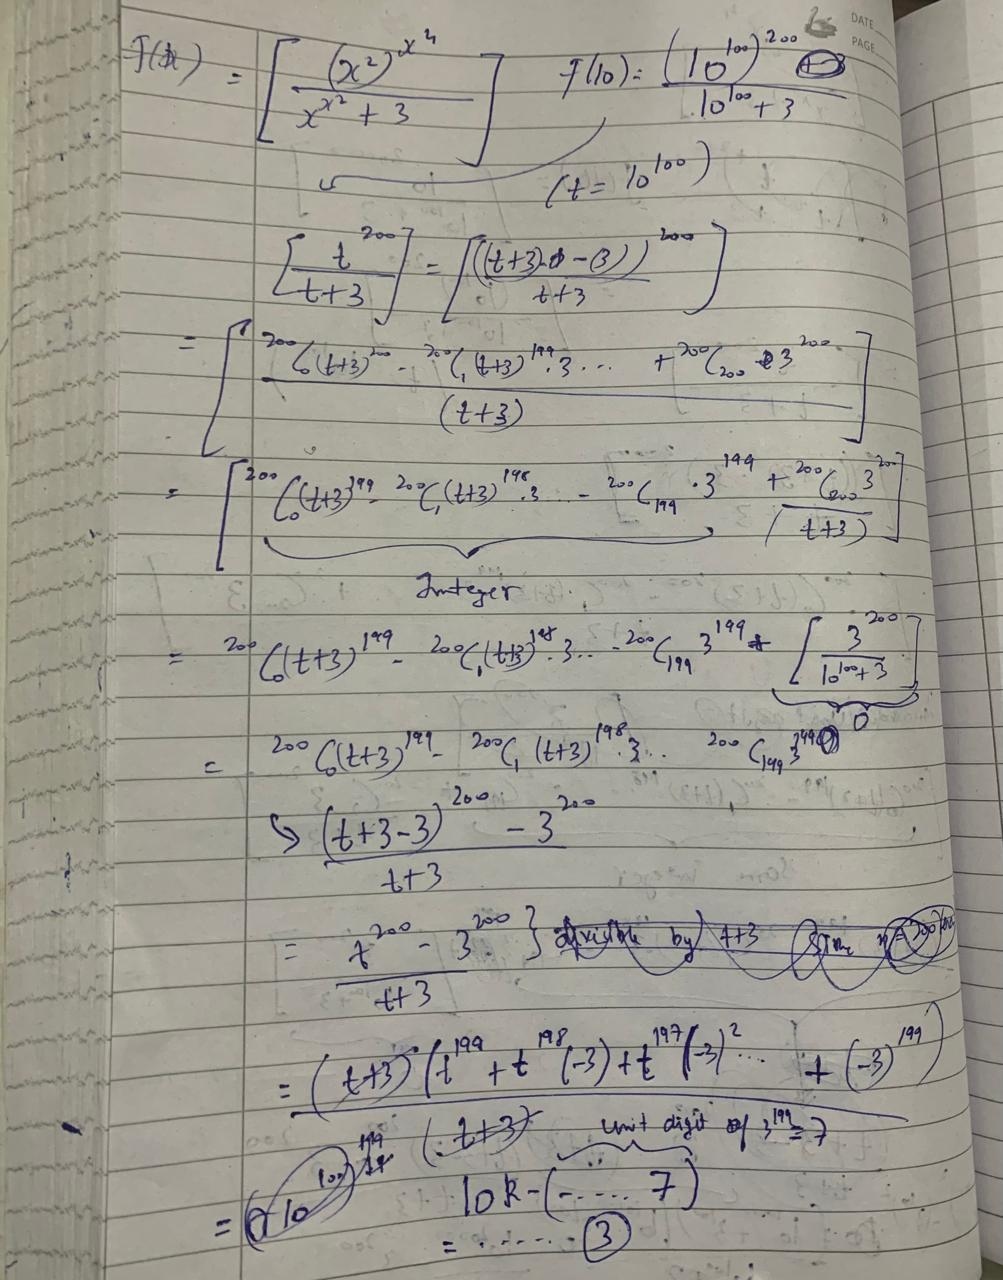 DATE
PAGE
f(x) = [ (x²)^x⁴ / x^x² + 3 ] f(10) = (10¹⁰⁰)²⁰⁰ / 10¹⁰⁰ + 3
(t = 10¹⁰⁰)
[ t²⁰⁰ / t+3 ] = [ ((t+3) - (3))²⁰⁰ / t+3 ]
= [ ²⁰⁰C₀(t+3)²⁰⁰ - ²⁰⁰C₁(t+3)¹⁹⁹·3 ... + ²⁰⁰C₂₀₀ 3²⁰⁰ / (t+3) ]
= [ ²⁰⁰C₀(t+3)¹⁹⁹ - ²⁰⁰C₁(t+3)¹⁹⁸·3 ... - ²⁰⁰C₁₉₉·3¹⁹⁹ + ²⁰⁰C₂₀₀ 3²⁰⁰ / (t+3) ]
Integer
= ²⁰⁰C₀(t+3)¹⁹⁹ - ²⁰⁰C₁(t+3)¹⁹⁸·3 ... - ²⁰⁰C₁₉₉ 3¹⁹⁹ + [ 3²⁰⁰ / 10¹⁰⁰+3 ]
0
= ²⁰⁰C₀(t+3)¹⁹⁹ - ²⁰⁰C₁(t+3)¹⁹⁸·3 ... ²⁰⁰C₁₉₉ 3¹⁹⁹
↳ (t+3-3)²⁰⁰ - 3²⁰⁰ / t+3
= t²⁰⁰ - 3²⁰⁰ / t+3 } divisible by t+3
= (t+3) (t¹⁹⁹ + t¹⁹⁸(-3) + t¹⁹⁷(-3)² ... + (-3)¹⁹⁹) / (t+3)
unit digit of 3¹⁹⁹ = 7
= 10k - (...... 7)
= ........ 3